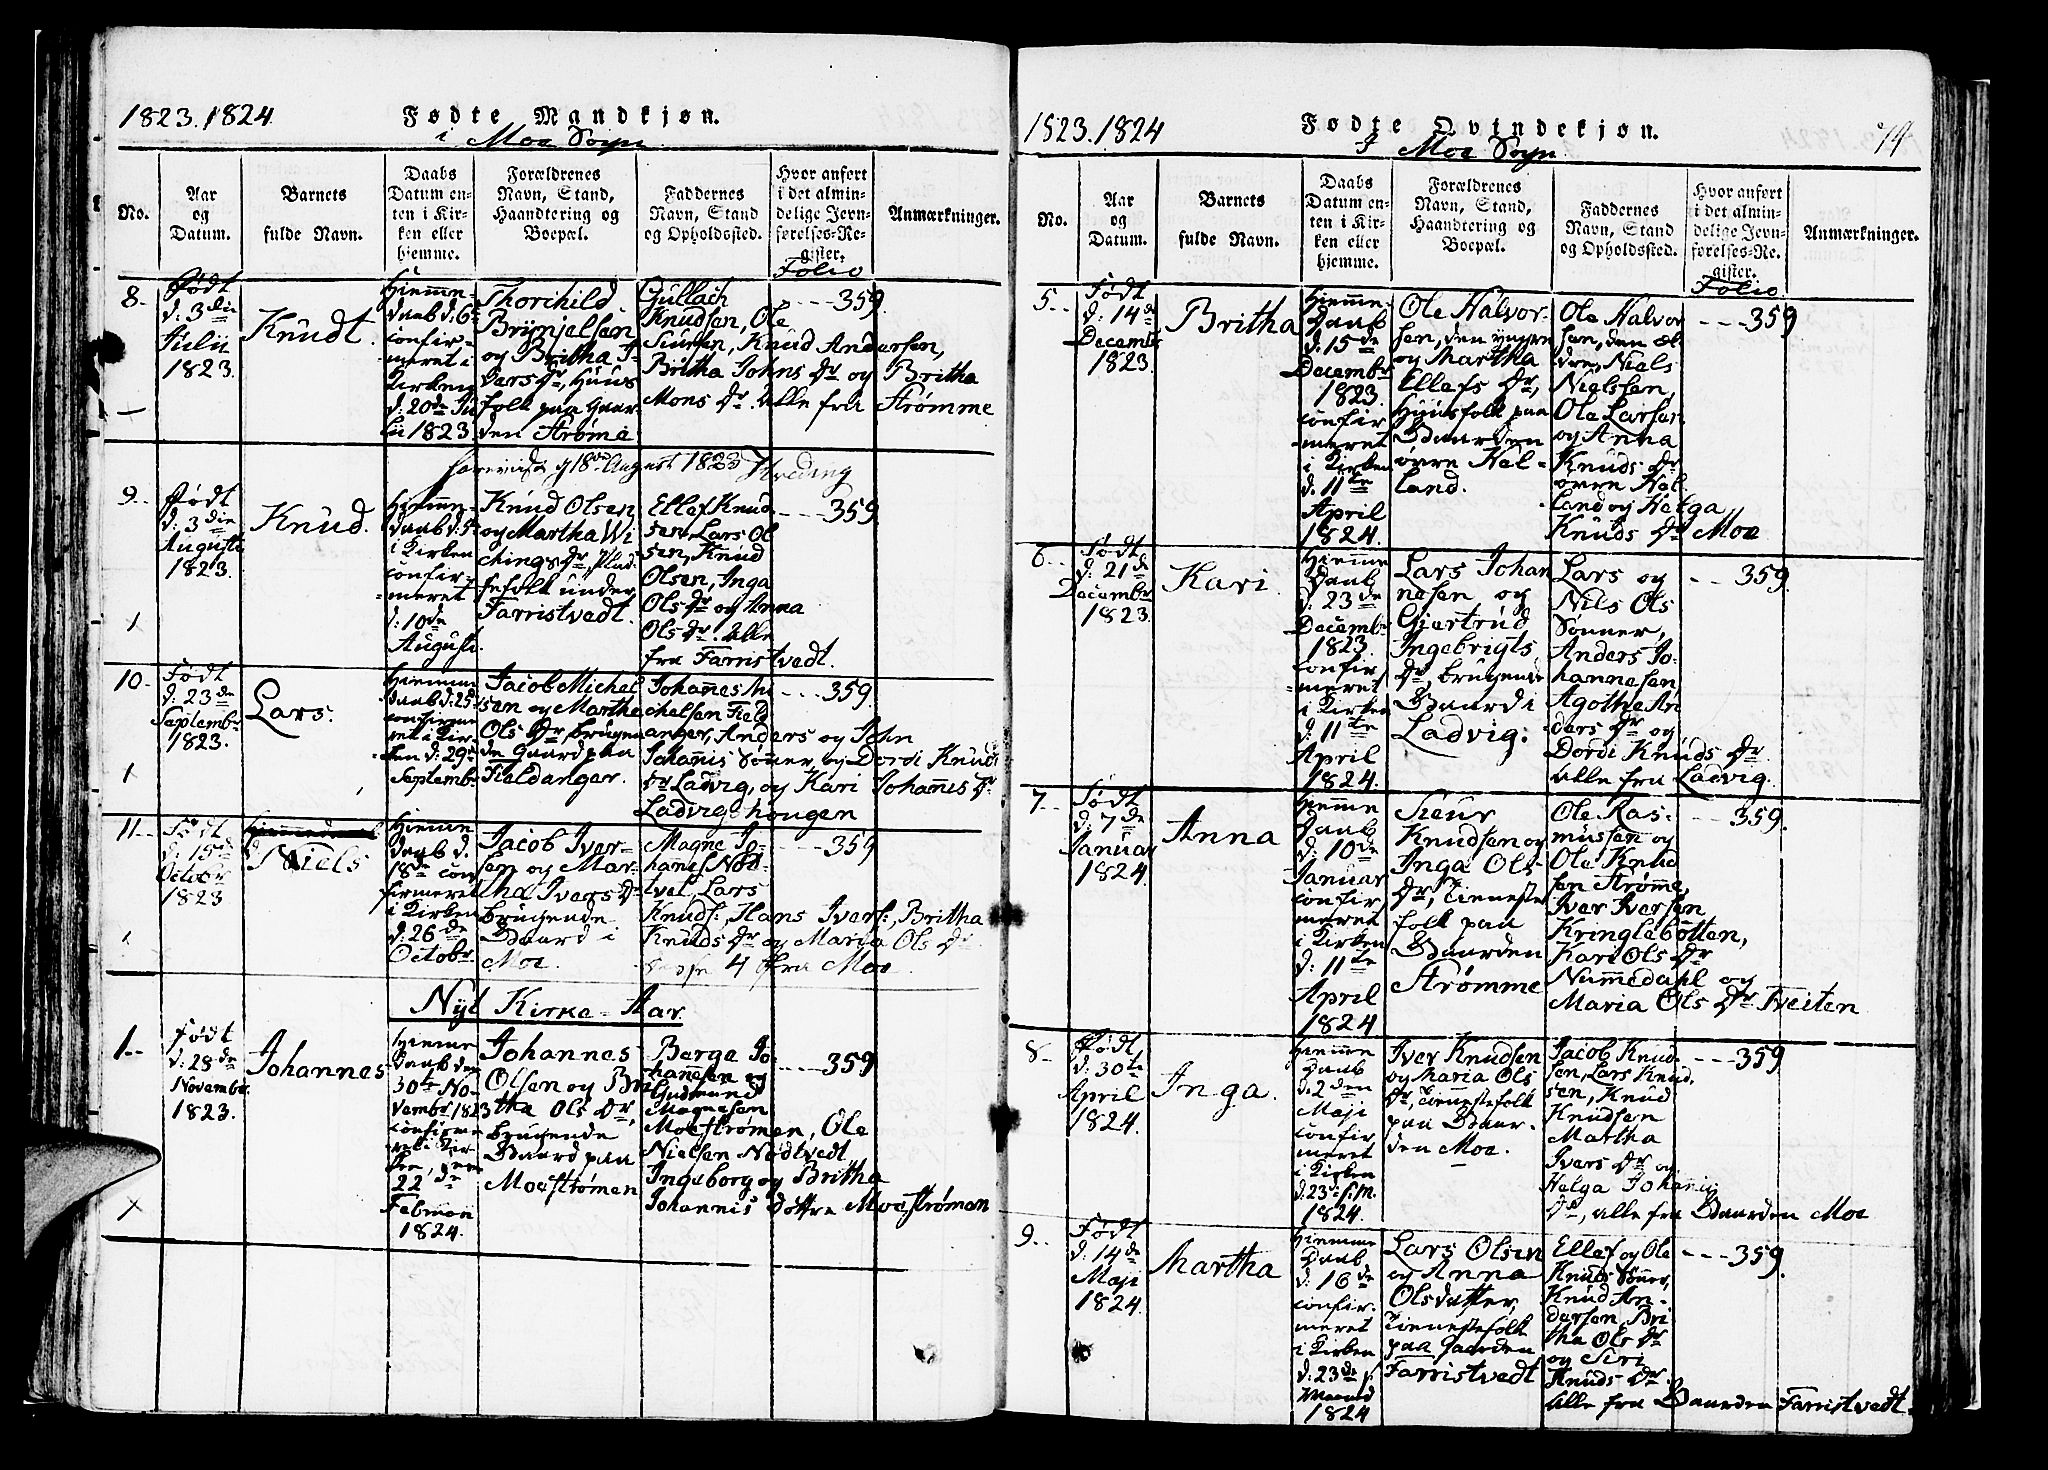 1823.1824
Fødte Mandkjøn.
i Moe Sogn
No.
Aar
og
Datum.
Barnets
fulde Navn.
Daabs
Datum en-
ten i Kir-
ken eller
hjemme.
Forældrenes
Navn, Stand,
Haandtering og
Boepæl.
Faddernes
Navn, Stand
og Opholdssted.
Hvor anført
i det almin-
delige Jevn-
førelses-Re-
gister.
Folio
Anmærkninger.
8-
Født
d: 3die
Julii
1823.
Knudt.
Hiemme-
daab d. 6te
confir-
meret i
Kirken
d: 20de Ju
lii 1823
Thorchild
Brynjelsen
og Britha I-
vers Dr, Huus
folk paa Gaar-
den Strøme
Gullach
Knudsen, Ole
Siursen, Knud Andersen,
Britha Johns Dr og Britha
Mons Dr. Alle fra Strømme
359.
18de August 1823
9-
Født
d: 3die
Augusti
1823.
Knud.
Hiemme-
daab d. 5te
i Kirken
confir-
meret
d: 10de
Augusti.
Knud Olsen
og Martha Wi
chings Dr, Plad-
sefolk under
Farristvedt.
Ellef Knud
sen, Lars Ol
sen, Knud
Olsen, Inga
Ols Dr og Anna
Ols Dr. Alle
fra Farristvedt.
359.
10-
Født
d: 23de
Septembr
1823.
Lars.
Hiemme
daab d: 25
confirme
ret i Kir-
ken d: 29de
Septembr
Jacob Michel
sen og Martha
Ols Dr, brugen
de Gaard paa
Fieldanger.
Johannes Mi
chelsen Field
anger, Anders og John
Johannis Sønner og Dordi Knuds
Dr Ladvig, og Kari Johannis Dr
Ladvighougen
359.
11-
Født
d: 15de
Octobr
1823
Niels
Hiemme
daab d.
18de con
firmeret
i Kirken
d: 26de
Octobr
Jacob Iver-
sen og Mar-
tha Ivers Dr
brugende
Gaard i
Moe.
Magne Jo-
hannes Nød-
tvet, Lars
Knuds: Hans Ivers: Britha
Knuds Dr og Maria Ols Dr
disse 4 fra Moe
359
Nyt Kirke-Aar.
1-
Født
d: 28de
Novembr
1823.
Johannes
Hiemme
Daab den
30te No-
vembr 1823
confirme
ret i Kir
ken, den
22de
Februari
1824.
Johannes
Olsen og Bri
tha Ols Dr,
brugende
Gaard paa
Moestrømen
Berge Jo-
hannesen og
Gudmund
Magnesen
Moestrømen, Ole
Nielsen Nødtvedt
Ingeborg og Britha
Johannis Døttre Moestrømen
359
1823.1824
Fødte Qvindekjøn.
I Moe Sogn
74
No.
Aar
og
Datum.
Barnets
fulde Navn.
Daabs
Datum en-
ten i Kir-
ken eller
hjemme.
Forældrenes
Navn, Stand,
Haandtering og
Boepæl.
Faddernes
Navn, Stand
og Opholdssted.
Hvor anført
i det almin-
delige Jevn-
førelses-Re-
gister.
Folio
Anmærkninger.
5-
Født
d: 14de
Decembr
1823.
Britha
Hiemme-
Daab
d: 15de
Decembr
1823.
confir
meret
i Kirken
d: 11te
April
1824.
Ole Halvor-
sen, den yngre
og Martha
Ellefs Dr,
Huusfolk paa
Gaarden
øvre Hel-
land.
Ole Halvor
sen, den æl
dre, Niels
Nielssen,
Ole Larsen
og Anna
Knuds Dr
øvre Hel-
land og Helga
Knuds Dr Moe
359
6-
Født
d: 21de
Decembr
1823.
Kari
Hiemme
Daab
d: 23de
Decembr
1823.
confir
meret
i Kirken
d: 11te
April
1824.
Lars Johan
nesen og
Giertrud
Ingebrigts
Dr, brugende
Gaard i
Ladvig.
Lars og
Nils Ols
Sønner,
Anders Jo-
hannesen
Agothe An
ders Dr og
Dordi Knuds Dr
alle fra Ladvig.
359.
7-
Født
d: 7de
Januar
1824.
Anna
Hiemme
Daab
d: 10de
Januar
confir
meret
i Kirken
d: 11te
April
1824
Sieur
Knudsen og
Inga Ols-
Dr, Tieneste
folk paa
Gaarden
Strømme
Ole Ras-
mussen og
Ole Knud
sen Strømme,
Iver Iversen
Kringlebotten,
Kari Ols Dr
Nummedahl og
Maria Ols Dr Tveiten
359.
8-
Født
d: 30te
April
1824.
Inga.
Hiemme
Daab
d: 2den
Maji
confir
meret
i Kirken
d: 23de s: M.
1824.
Iver Knudsen
og Maria Ols
Dr, Tienestefolk
paa Gaar-
den Moe.
Jacob Knud-
sen, Lars Knud
sen, Knud
Knudsen
Martha
Ivers Dr og
Helga Johannis
Dr, alle fra Gaarden Moe
359
9-
Født
d: 14de
Maji
1824.
Martha
Hiemme
Daab
d: 16de
confir-
meret
i Kirken
d: 23de s
Maaned
1824
Lars Olsen
og Anna
Olsdatter,
Tienestefolk
paa Gaarden
Farristvedt
Ellef og Ole
Knuds Sønner,
Knud An-
dersen, Bri
tha Ols Dr
og Siri
Knuds Dr.
Alle fra Gaarden Farristvedt.
359.